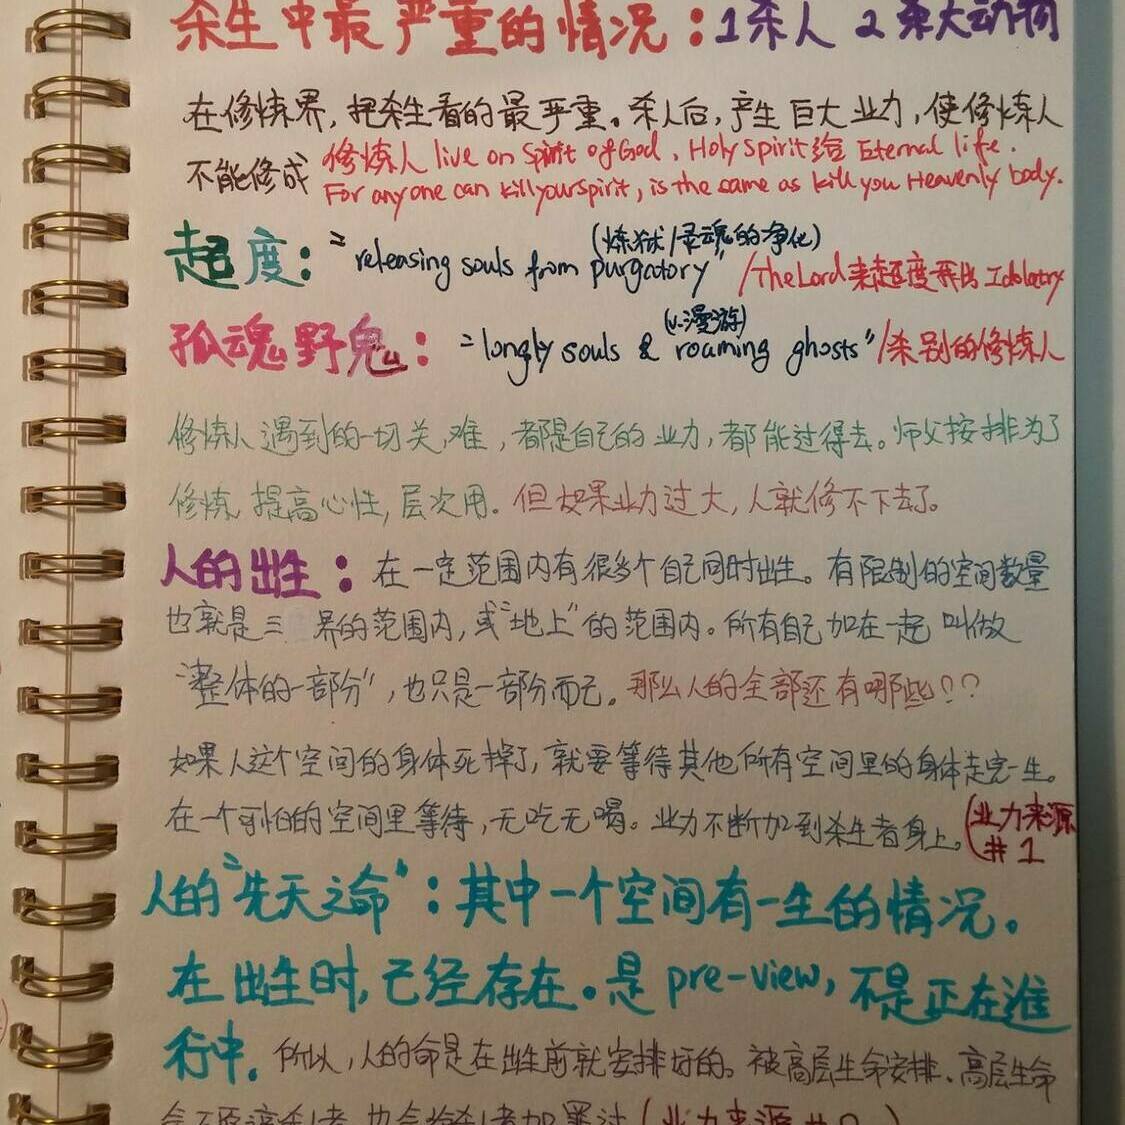 杀生中最严重的情况：1杀人 2杀大动物
在修炼界，把杀生看的最严重。杀人后，产生巨大业力，使修炼人
不能修成 修炼人 live on Spirit of God, Holy Spirit给 Eternal life.
For anyone can kill your spirit, is the same as kill you Heavenly body.
(炼狱/灵魂的净化)
超度： "releasing souls from purgatory" /The Lord 来超度 Idolatry
(v.漫游)
孤魂野鬼： "longly souls & roaming ghosts"/杀别的修炼人
修炼人遇到的一切关，难，都是自己的业力，都能过得去。师父按排为了
修炼，提高心性，层次用。但如果业力过大，人就修不下去了。
人的出生： 在一定范围内有很多个自己同时出生。有限制的空间数量
也就是三 界的范围内，或"地上"的范围内。所有自己加在一起 叫做
"整体的一部分"，也只是一部分而已。那么人的全部还有哪些？？
如果人这个空间的身体死掉了，就要等待其他所有空间里的身体走完一生。
在一个可怕的空间里等待，无吃无喝。业力不断加到杀生者身上。(业力来源
#1
人的"先天之命"：其中一个空间有一生的情况。
在出生时，已经存在。是 pre-view，不是正在進
行中。所以，人的命是在出生前就安排好的。被高层生命安排、高层生命
(业力来源